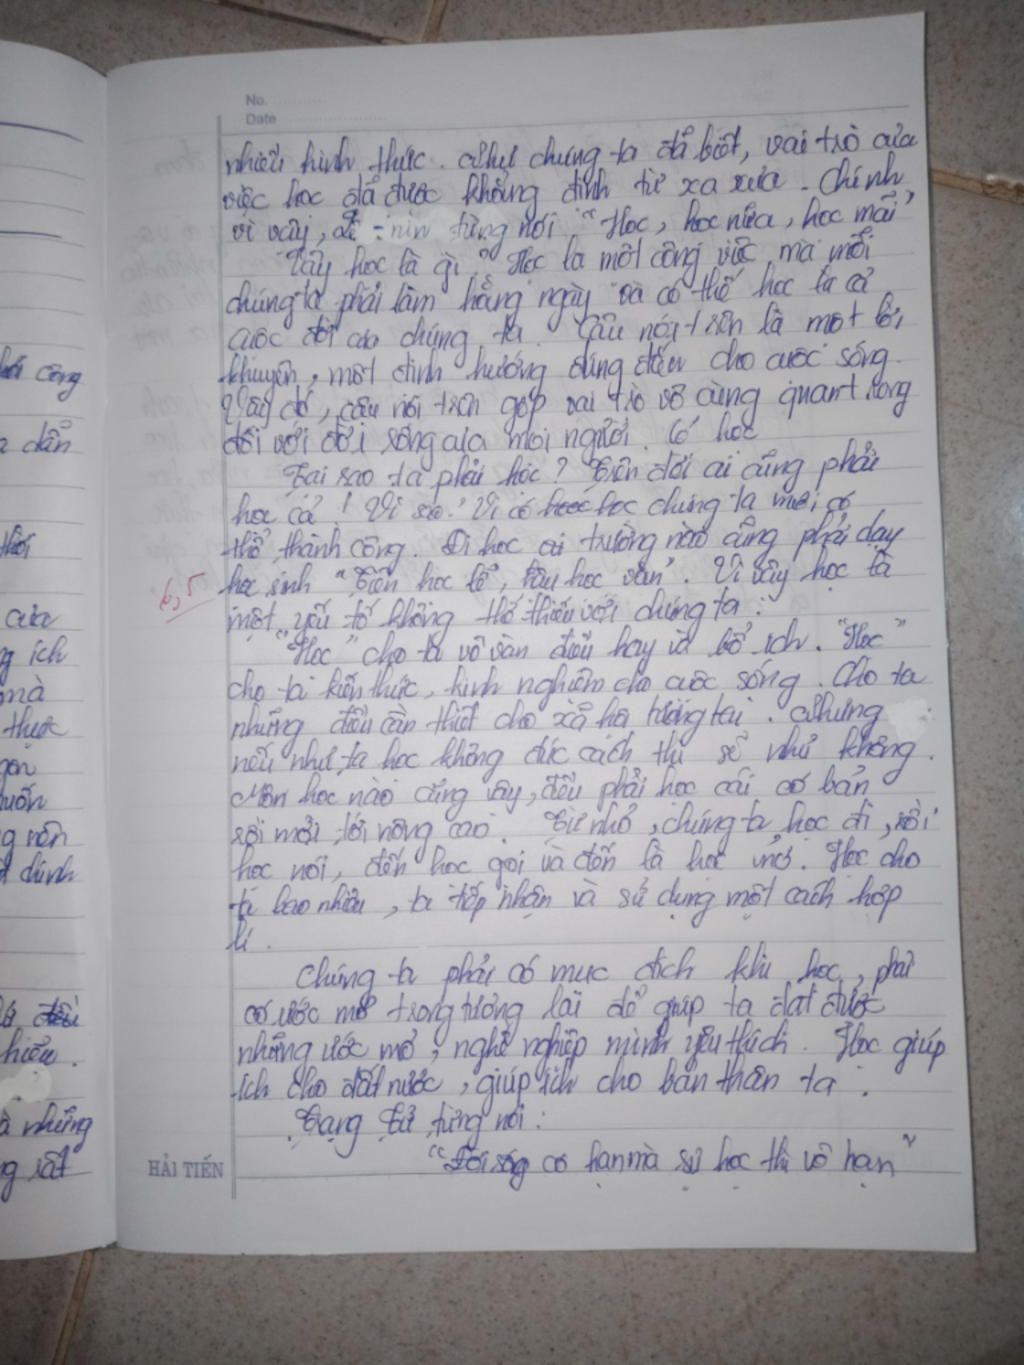 No.
Date
nhiều hình thức. Như chúng ta đã biết, vai trò của
việc học đã được khẳng định từ xa xưa. Chính
vì vậy, Lê-nin từng nói "Học, học nữa, học mãi"
Vậy học là gì? Học là một công việc mà mỗi
chúng ta phải làm hằng ngày và có thể học là cả
cuộc đời của chúng ta. Câu nói trên là một lời
khuyên, một định hướng đúng đắn cho cuộc sống.
đó, câu nói trên góp vai trò vô cùng quan trọng
đối với đời sống của mọi người. Có học
Tại sao ta phải học? Trên đời ai cũng phải
học cả! Vì sao? Vì có học chúng ta mới có
thể thành công. Đi học trường nào cũng phải dạy
học sinh "Tiên học lễ, hậu học văn". Vì vậy học là
6,5
một yếu tố không thể thiếu với chúng ta.
"Học" cho ta vô vàn điều hay và bổ ích. "Học"
cho ta kiến thức, kinh nghiệm cho cuộc sống. Cho ta
những điều cần thiết cho xã hội tương lai. Nhưng
nếu như ta học không đúc cách thì sẽ như không.
Môn học nào cũng vậy, đều phải học cái cơ bản
rồi mới tới nâng cao. Từ nhỏ, chúng ta học đi, rồi
học nói, đến học gọi và đến là học
Học cho
ta bao nhiêu, ta tiếp nhận và sử dụng một cách hợp
lí.
Chúng ta phải có mục đích khi học, phải
có ước mơ trong tương lai để giúp ta đạt được
những ước mơ, nghề nghiệp mình yêu thích. Học giúp
ích cho đất nước, giúp ích cho bản thân ta.
Trang Tử từng nói:
"Đời sống có hạn mà sự học thì vô hạn"
HẢI TIẾN
công
dẫn
của
ích
mà
thực
muốn
nên
chính
hiểu.
những
rất